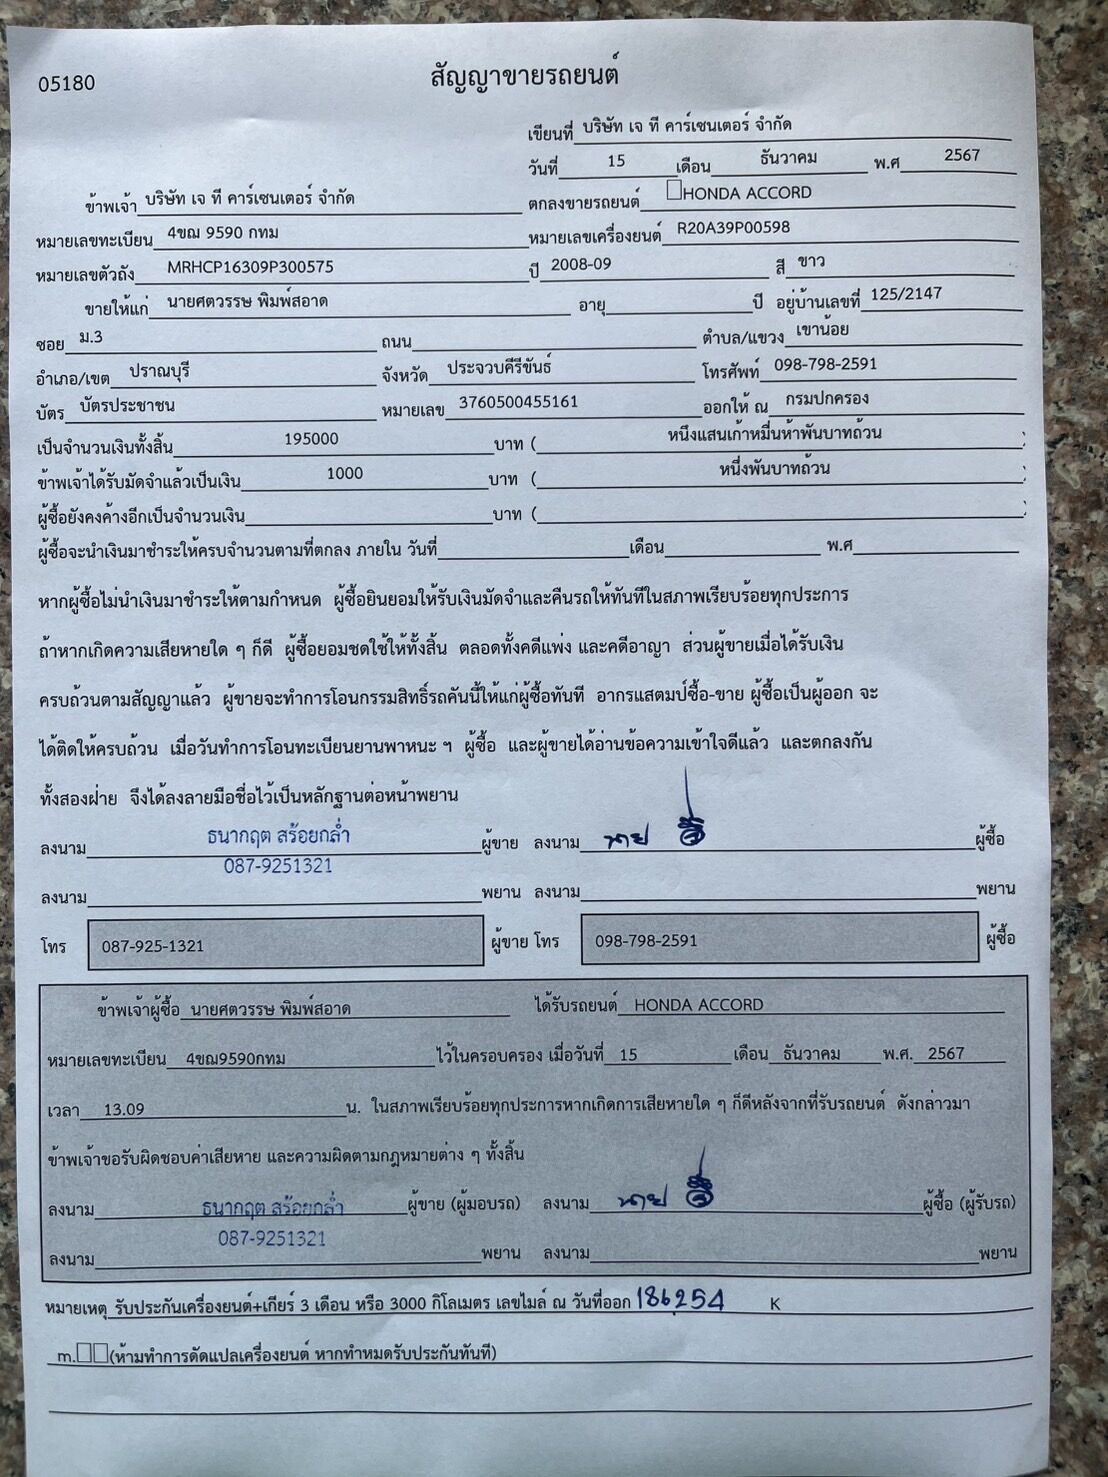 05180
สัญญาขายรถยนต์
เขียนที่ บริษัท เจ ที คาร์เซนเตอร์ จำกัด
วันที่ 15 เดือน ธันวาคม พ.ศ 2567
ข้าพเจ้า บริษัท เจ ที คาร์เซนเตอร์ จำกัด ตกลงขายรถยนต์ HONDA ACCORD
หมายเลขทะเบียน 4ขฌ 9590 กทม หมายเลขเครื่องยนต์ R20A39P00598
หมายเลขตัวถัง MRHCP16309P300575 ปี 2008-09 สี ขาว
ขายให้แก่ นายศตวรรษ พิมพ์สอาด อายุ ปี อยู่บ้านเลขที่ 125/2147
ซอย ม.3 ถนน ตำบล/แขวง เขาน้อย
อำเภอ/เขต ปราณบุรี จังหวัด ประจวบคีรีขันธ์ โทรศัพท์ 098-798-2591
บัตร บัตรประชาชน หมายเลข 3760500455161 ออกให้ ณ กรมปกครอง
เป็นจำนวนเงินทั้งสิ้น 195000 บาท ( หนึ่งแสนเก้าหมื่นห้าพันบาทถ้วน )
ข้าพเจ้าได้รับมัดจำแล้วเป็นเงิน 1000 บาท ( หนึ่งพันบาทถ้วน )
ผู้ซื้อยังคงค้างอีกเป็นจำนวนเงิน บาท ( )
ผู้ซื้อจะนำเงินมาชำระให้ครบจำนวนตามที่ตกลง ภายใน วันที่ เดือน พ.ศ
หากผู้ซื้อไม่นำเงินมาชำระให้ตามกำหนด ผู้ซื้อยินยอมให้รับเงินมัดจำและคืนรถให้ทันทีในสภาพเรียบร้อยทุกประการ
ถ้าหากเกิดความเสียหายใด ๆ ก็ดี ผู้ซื้อยอมชดใช้ให้ทั้งสิ้น ตลอดทั้งคดีแพ่ง และคดีอาญา ส่วนผู้ขายเมื่อได้รับเงิน
ครบถ้วนตามสัญญาแล้ว ผู้ขายจะทำการโอนกรรมสิทธิ์รถคันนี้ให้แก่ผู้ซื้อทันที อากรแสตมป์ซื้อ-ขาย ผู้ซื้อเป็นผู้ออก จะ
ได้ติดให้ครบถ้วน เมื่อวันทำการโอนทะเบียนยานพาหนะ ฯ ผู้ซื้อ และผู้ขายได้อ่านข้อความเข้าใจดีแล้ว และตกลงกัน
ทั้งสองฝ่าย จึงได้ลงลายมือชื่อไว้เป็นหลักฐานต่อหน้าพยาน
ลงนาม ธนากฤต สร้อยกล่ำ ผู้ขาย ลงนาม นาย ผู้ซื้อ
087-9251321
ลงนาม พยาน ลงนาม พยาน
โทร 087-925-1321 ผู้ขาย โทร 098-798-2591 ผู้ซื้อ
ข้าพเจ้าผู้ซื้อ นายศตวรรษ พิมพ์สอาด ได้รับรถยนต์ HONDA ACCORD
หมายเลขทะเบียน 4ขฌ9590กทม ไว้ในครอบครอง เมื่อวันที่ 15 เดือน ธันวาคม พ.ศ. 2567
เวลา 13.09 น. ในสภาพเรียบร้อยทุกประการหากเกิดการเสียหายใด ๆ ก็ดีหลังจากที่รับรถยนต์ ดังกล่าวมา
ข้าพเจ้าขอรับผิดชอบค่าเสียหาย และความผิดตามกฎหมายต่าง ๆ ทั้งสิ้น
ลงนาม ธนากฤต สร้อยกล่ำ ผู้ขาย (ผู้มอบรถ) ลงนาม นาย ผู้ซื้อ (ผู้รับรถ)
087-9251321
ลงนาม พยาน ลงนาม พยาน
หมายเหตุ รับประกันเครื่องยนต์+เกียร์ 3 เดือน หรือ 3000 กิโลเมตร เลขไมล์ ณ วันที่ออก 186,254 K
m. (ห้ามทำการดัดแปลเครื่องยนต์ หากทำหมดรับประกันทันที)